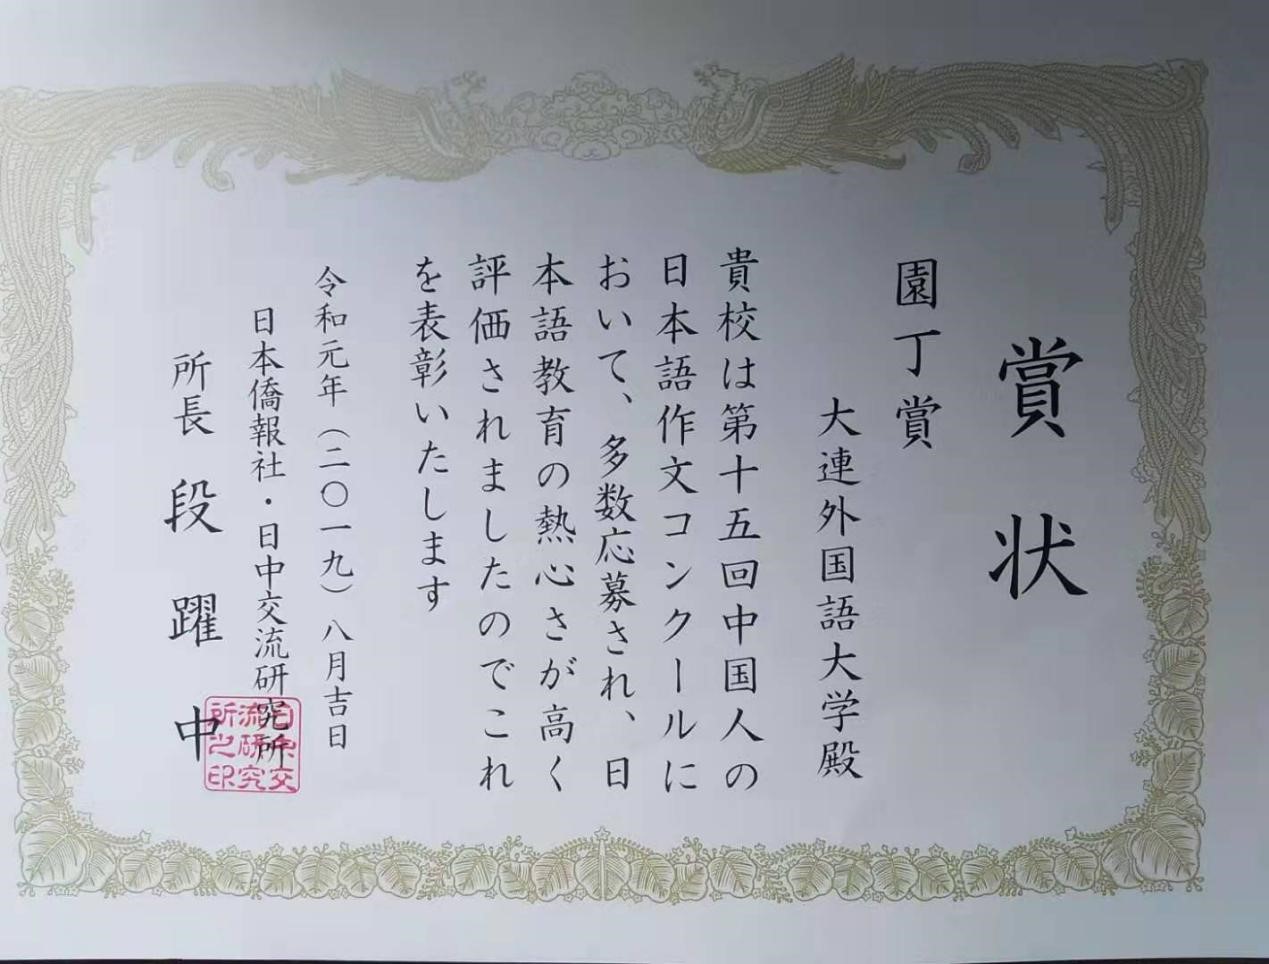 賞状
園丁賞
大連外国語大学殿
貴校は第十五回中国人の
日本語作文コンクールに
おいて、多数応募され、日
本語教育の熱心さが高く
評価されましたのでこれ
を表彰いたします
令和元年（二〇一九）八月吉日
日本僑報社・日中交流研究所
所長 段躍中